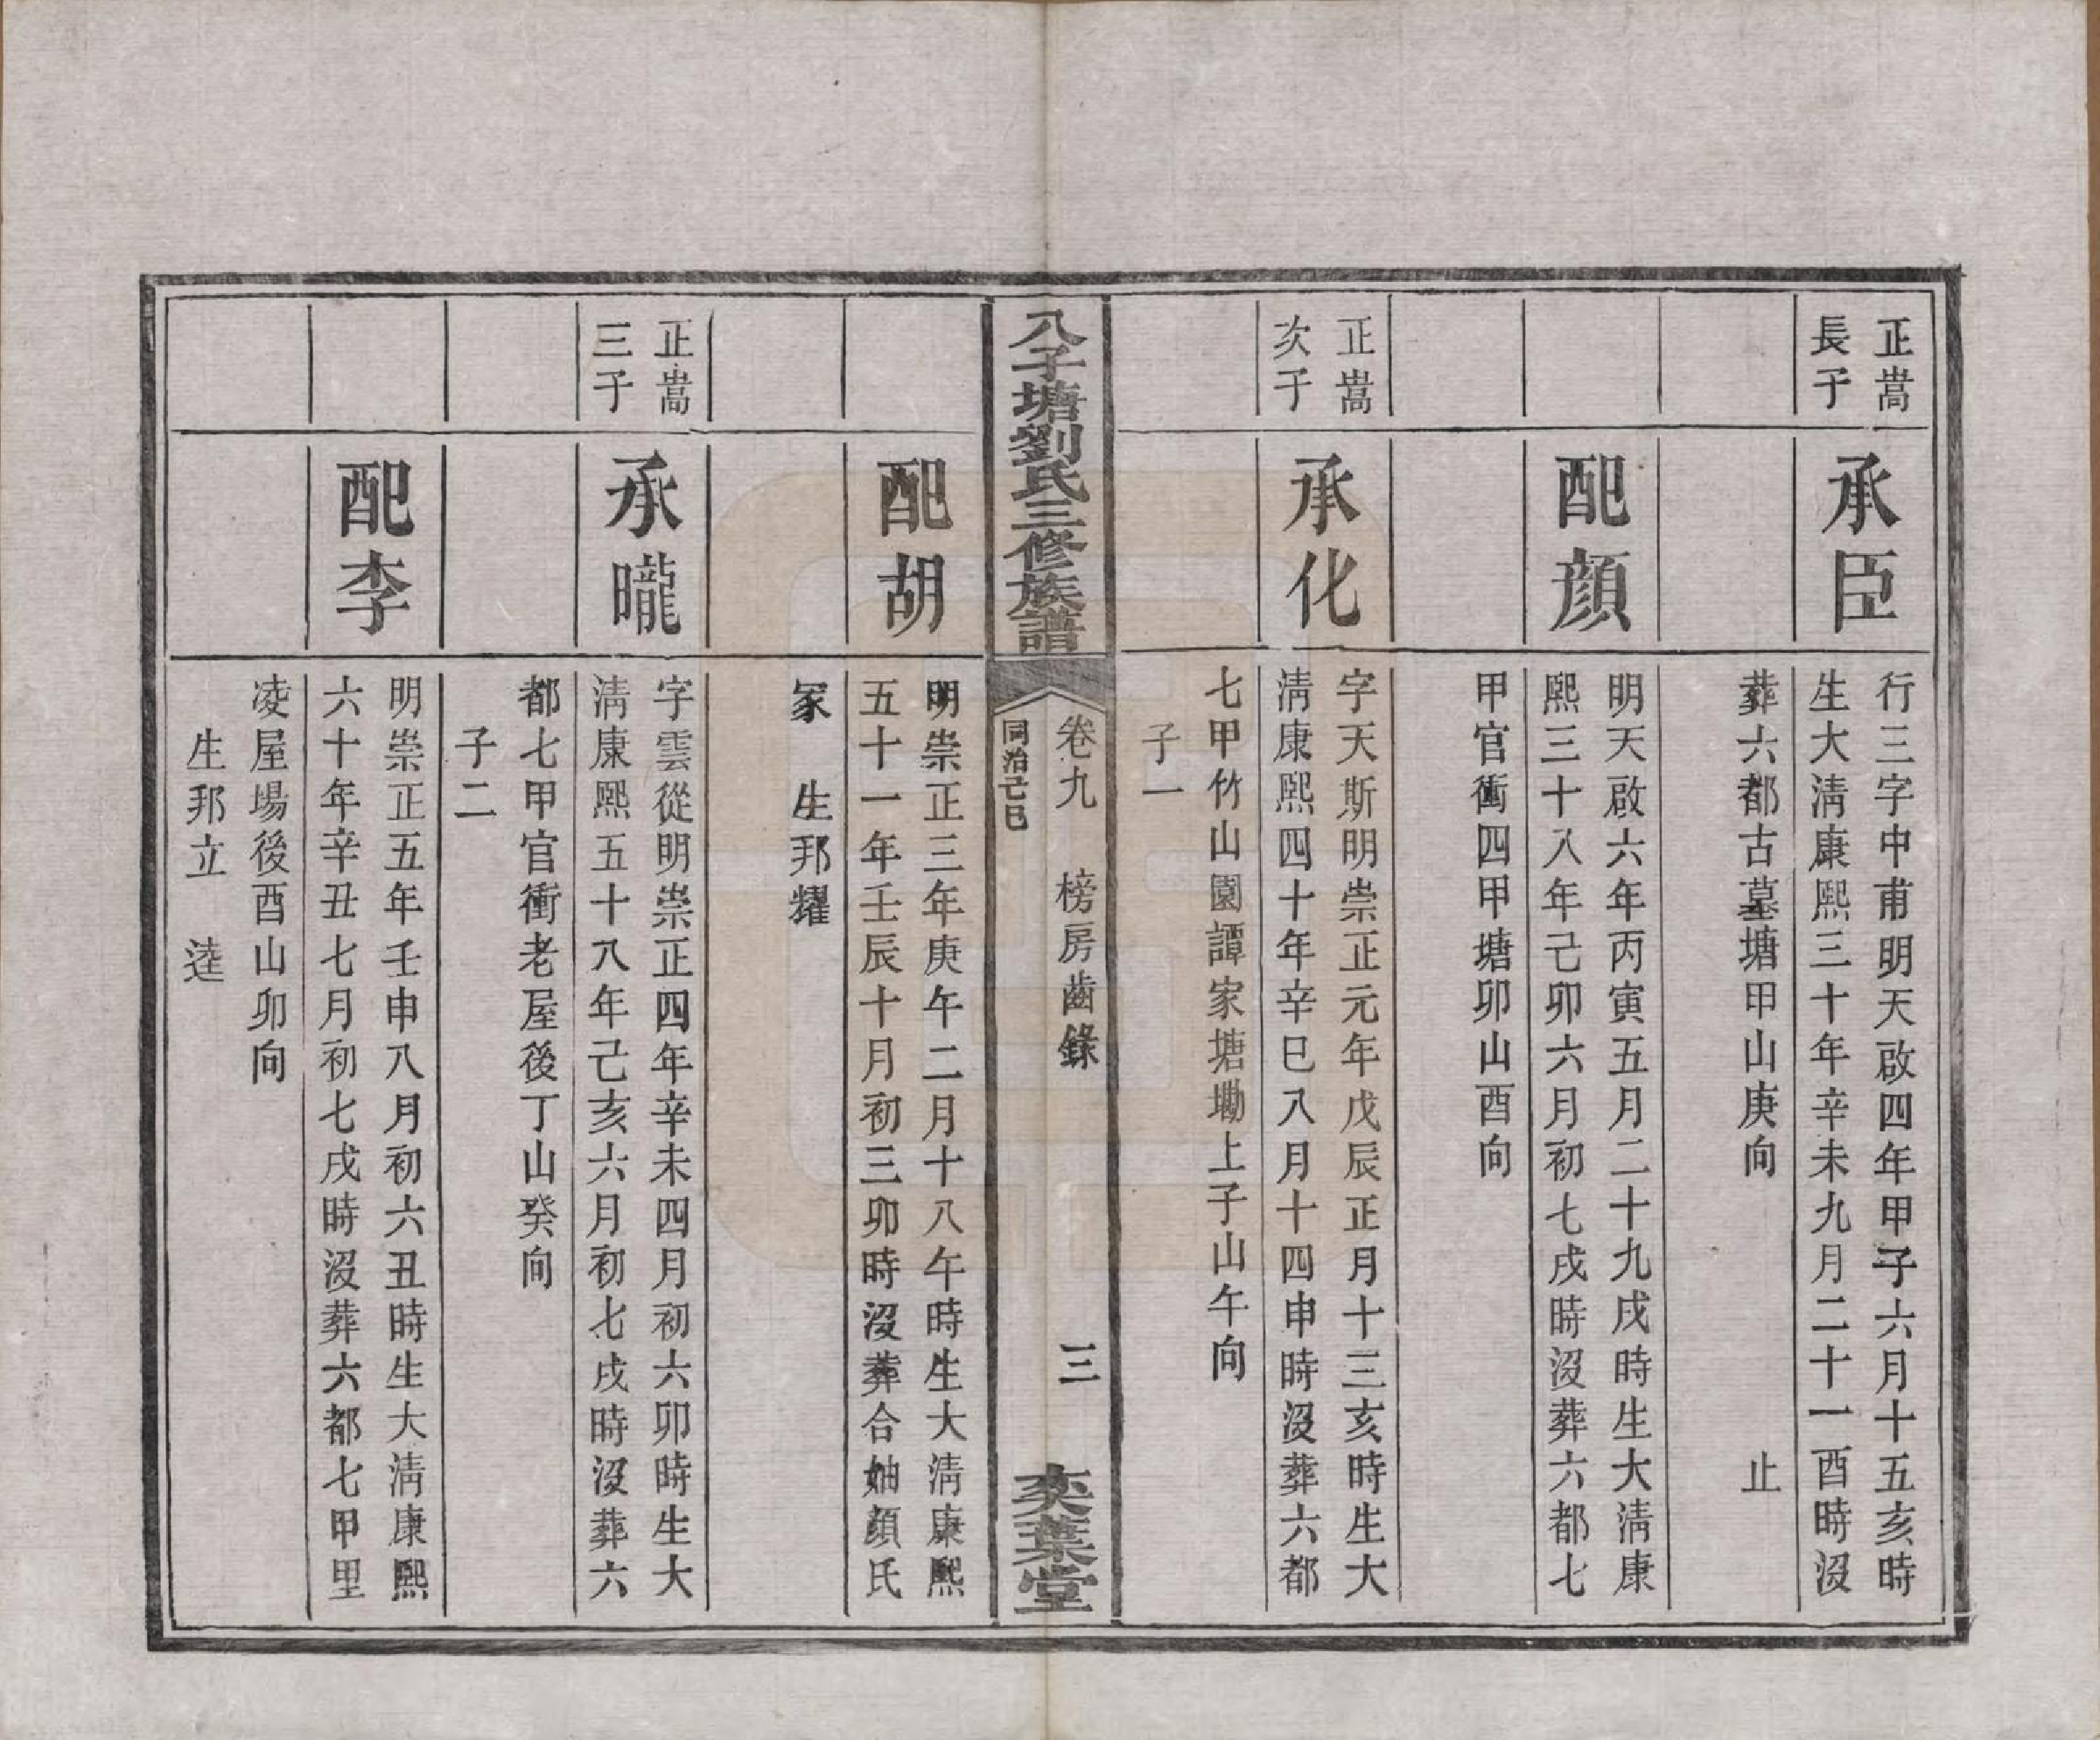 正嵩
長子
承臣
行三字中甫明天啟四年甲子六月十五亥時
生大淸康熙三十年辛未九月二十一酉時沒
葬六都古墓塘甲山庚向　止
配顔
明天啟六年丙寅五月二十九戌時生大淸康
熙三十八年己卯六月初七戌時沒葬六都七
甲官衝四甲塘卯山酉向
正嵩
次子
承化
字天斯明崇正元年戊辰正月十三亥時生大
淸康熙四十年辛巳八月十四申時沒葬六都
七甲竹山園譚家塘墈上子山午向
子一
八子塘劉氏三修族譜
卷九　榜房齒錄　三
同治己巳
奕葉堂
配胡
明崇正三年庚午二月十八午時生大淸康熙
五十一年壬辰十月初三卯時沒葬合妯顔氏
冢　生邦耀
正嵩
三子
承曨
字雲從明崇正四年辛未四月初六卯時生大
淸康熙五十八年己亥六月初七戌時沒葬六
都七甲官衝老屋後丁山癸向
子二
配李
明崇正五年壬申八月初六丑時生大淸康熙
六十年辛丑七月初七戌時沒葬六都七甲里
凌屋場後酉山卯向
生邦立　逵